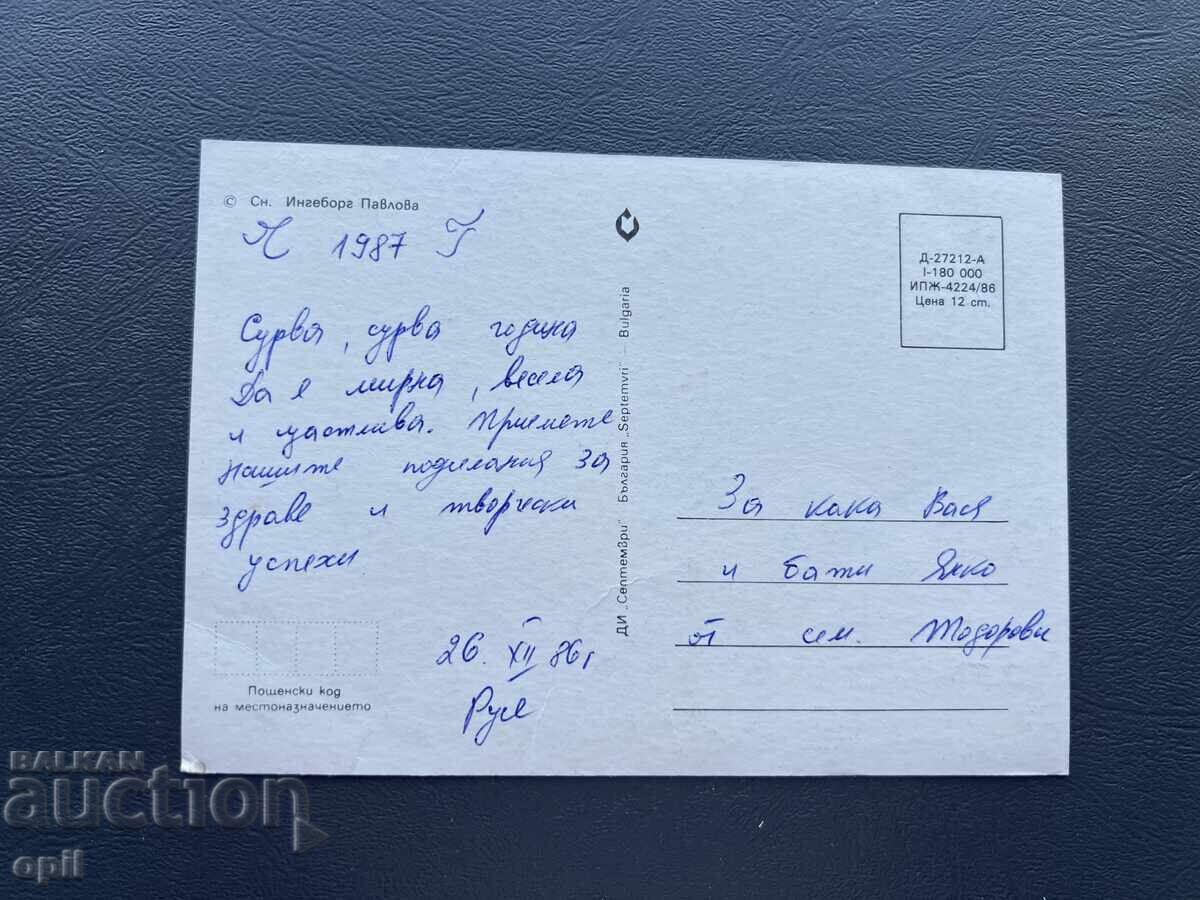 © Сн. Ингеборг Павлова
Ч 1987 Г
Сурва, сурва година
Да е мирна, весела
и щастлива. Приемете
нашите пожелания за
здраве и творчески
успехи
26. XII 86 г
Русе
Пощенски код
на местоназначението
ДИ „Септември" – България „Septemvri" – Bulgaria
Д-27212-А
I-180 000
ИПЖ-4224/86
Цена 12 ст.
За кака Вася
и бати Янко
от сем. Тодорови
BALKAN
auction
opil